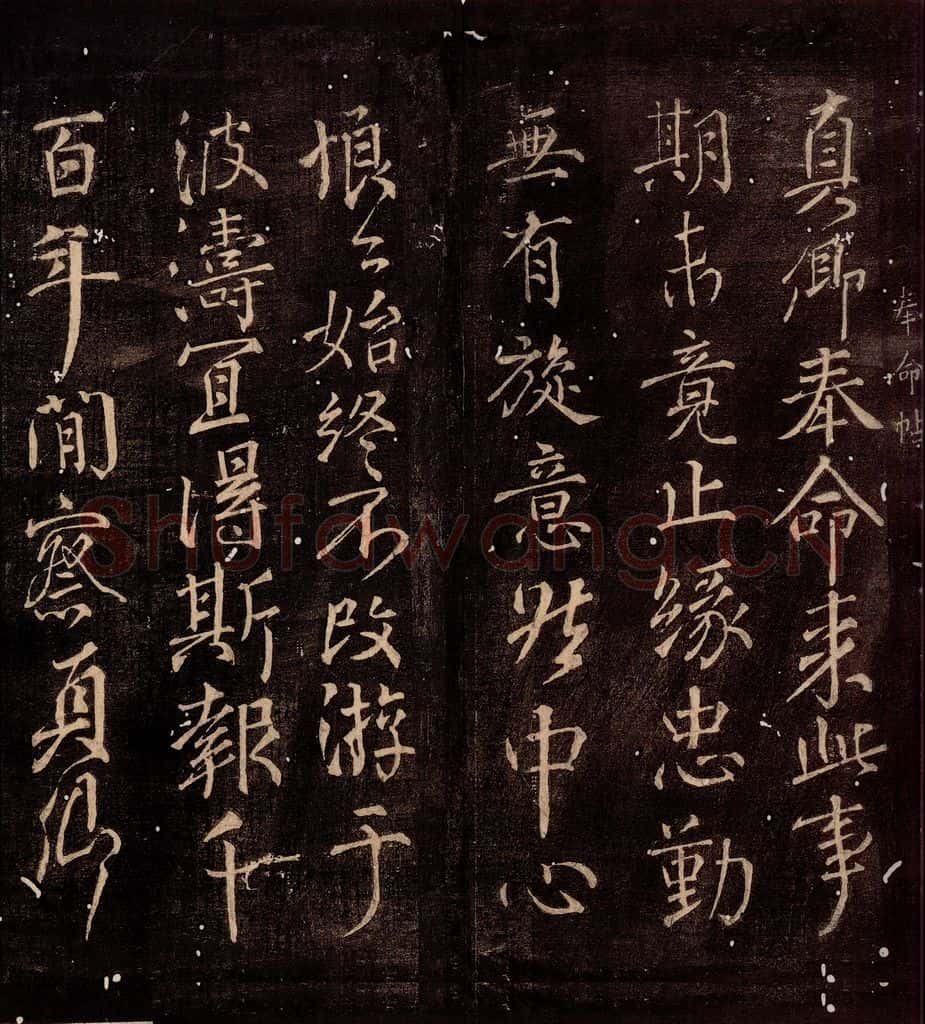 奉命帖
真卿奉命来此事
期未竟止緣忠勤
無有旋意然中心
悢々始終不改游于
波濤宜得斯報千
百年間察真卿
Shufawang.CN